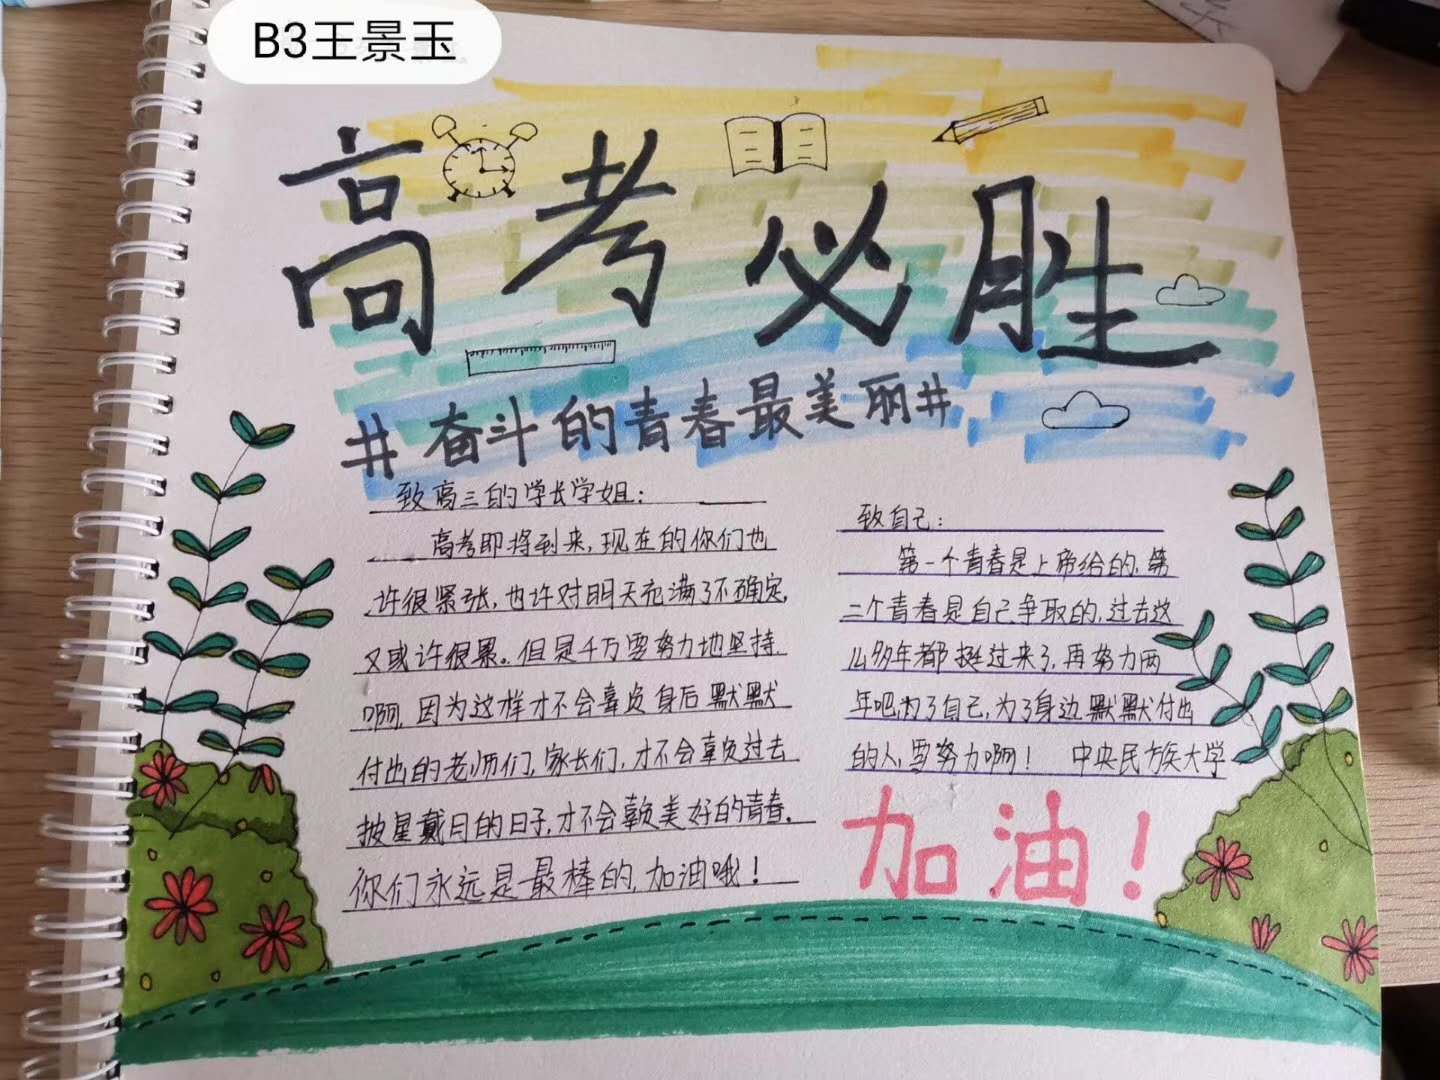 B3王景玉
高考必胜
#奋斗的青春最美丽#
致高三的学长学姐：
高考即将到来,现在的你们也
许很紧张,也许对明天充满了不确定,
又或许很累。但是千万要努力地坚持
啊,因为这样才不会辜负身后默默
付出的老师们,家长们,才不会辜负过去
披星戴月的日子,才不会辜负美好的青春。
你们永远是最棒的,加油哦！
致自己：
第一个青春是上帝给的,第
二个青春是自己争取的,过去这
么多年都挺过来了,再努力两
年吧,为了自己,为了身边默默付出
的人,要努力啊！ 中央民族大学
加油！